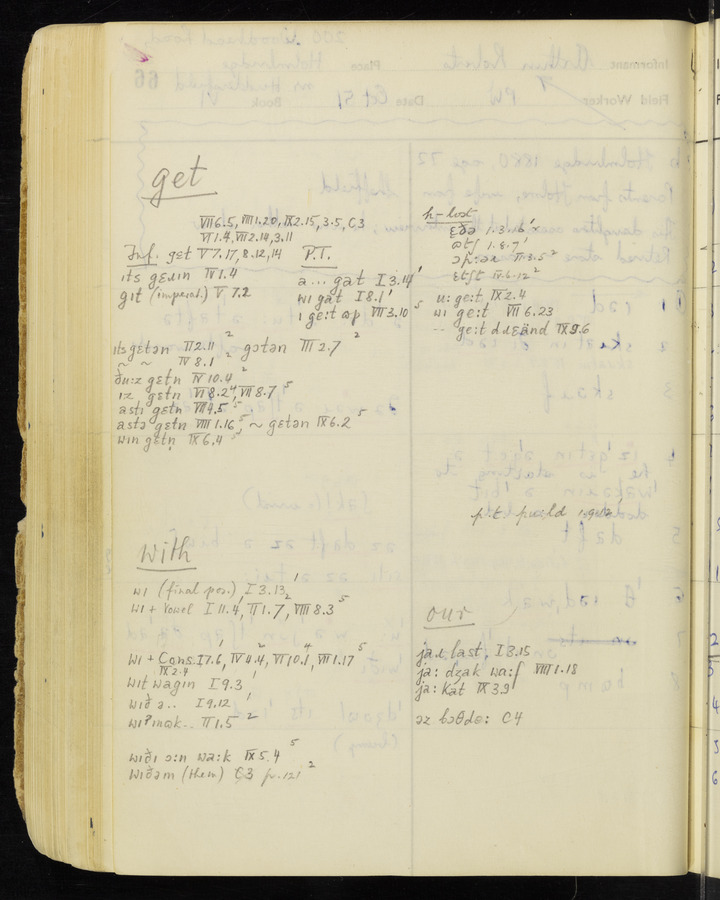 get
VII 6.5, VIII 1.20, IX 2.15, 3.5, C3
VI 1.4, VII 2.14, 3.11
Inf. gɛt V 7.17, 8.12, 14
ɪts gɛɹɪn IV 1.4
gɪt (imperat.) V 7.2
P.T.
a... gat I 3.14'
wɪ gat I 8.1'
ɪ gɛ:t ɷp VII 3.10 5
ɪtsgɛtən II 2.11 2 gɔtən III 2.7 2
~ ~ IV 8.1 2
ðu:z gɛtn IV 10.4 2
ɪz gɛtn VI 8.2 4, VII 8.7 5
astɪ gɛtn VII 4.5 5
astə gɛtn VIII 1.16 5, ~ gɛtən IX 6.2 5
wɪn gɛtn IX 6.4 5
h-lost
ɛðə I.3.16'
ɷtʃ I.8.7'
ɛtʃt IV.6.12 2
u: gɛ:t, IX 2.4
wɪ gɛ:t VII 6.23
-- gɛ:t dɹɛänd IX 9.6
with
wɪ (final pos.), I 3.13 2
wɪ + vowel I 11.4, II 1.7, VIII 8.3 5
wɪ + Cons. I 7.6, IV 4.4, VI 10.1, VII 1.17 5
IX 2.4
wɪt wagɪn I 9.3'
wɪð ə.. I 9.12'
wɪʔ mɷk.. II 1.5 2
wɪðɪ ɔ:n wa:k IX 5.4 5
wɪðəm (them) C3 p.121 2
our
jaɹ last, I 3.15
ja: dʒak wa:f VIII 1.18
ja: kat IX 3.9
əz bɔθdə: C4